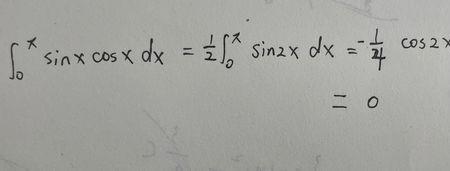 ∫₀^π sinx cosx dx = ½∫₀^π sin2x dx = -¼ cos2x
= 0